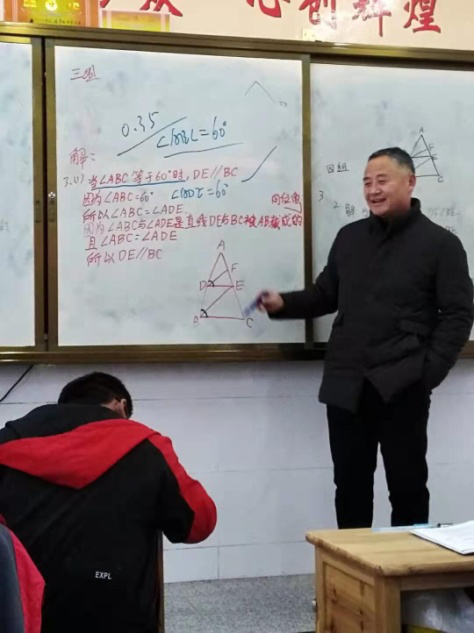 心创辉煌
三组
0.35
∠ABC=60°
解:
3.(1) 当∠ABC等于60°时, DE//BC
因为∠ABC=60° ∠ADE=60°
所以∠ABC=∠ADE
同位角
因为∠ABC与∠ADE是直线DE与BC被AB截成的
且∠ABC=∠ADE
所以DE//BC
A
F
D
E
B
C
四组
3.
2.
A
C
EXPL